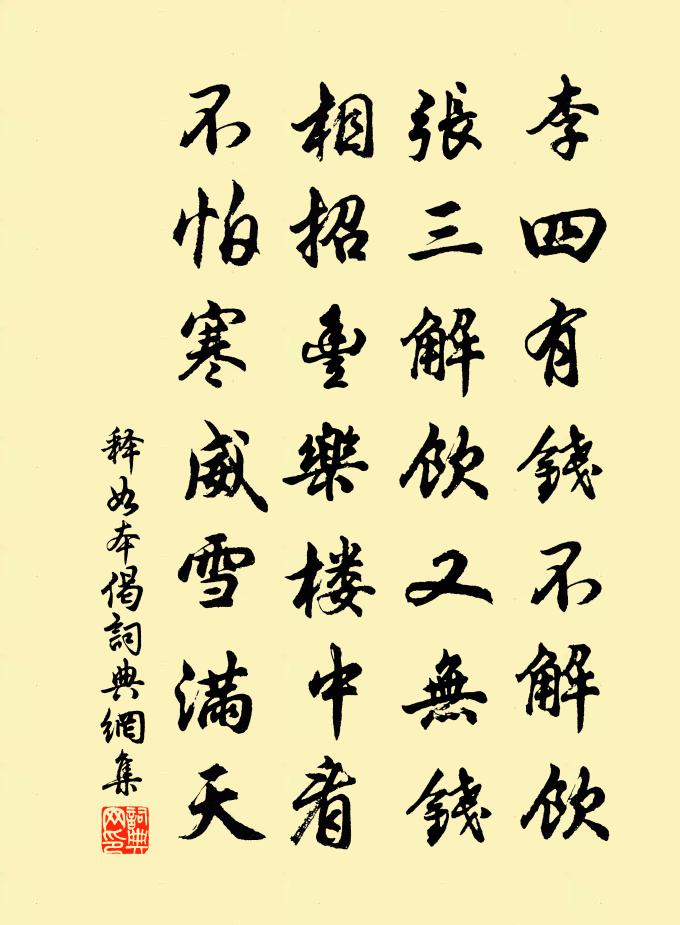 李四有錢不解飲
張三解飲又無錢
相招豊樂楼中看
不怕寒威雪滿天
释如本偈詞典網集
詞典网印